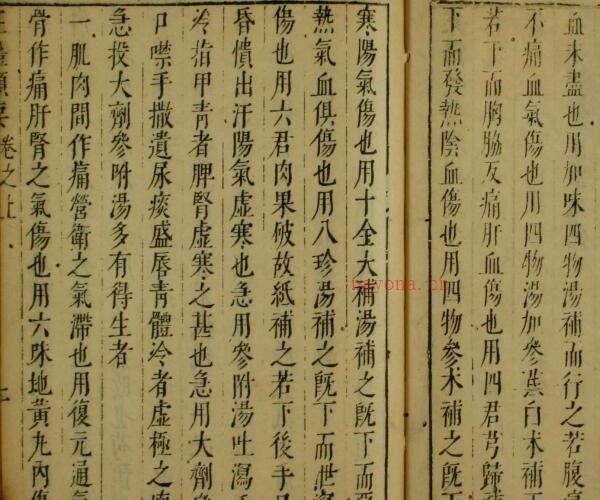 血未盡也用加味四物湯補而行之若腹
不痛血氣傷也用四物湯加參芪白朮補
若下而胸脇反痛肝血傷也用四君芎歸
下而發熱陰血傷也用四物參朮補之旣下
寒陽氣傷也用十全大補湯補之旣下而惡
熱氣血俱傷也用八珍湯補之旣下而泄瀉
傷也用六君肉果破故紙補之若下後手足
昏憒出汗陽氣虛寒也急用參附湯吐瀉手
冷指甲青者脾腎虛寒之甚也急用大劑參
口噤手撒遺尿痰盛唇青體冷者虛極之
急投大劑參附湯多有得生者
一肌肉間作痛營衛之氣滯也用復元通氣
骨作痛肝腎之氣傷也用六味地黃丸內傷
卷之上
nayona.cn